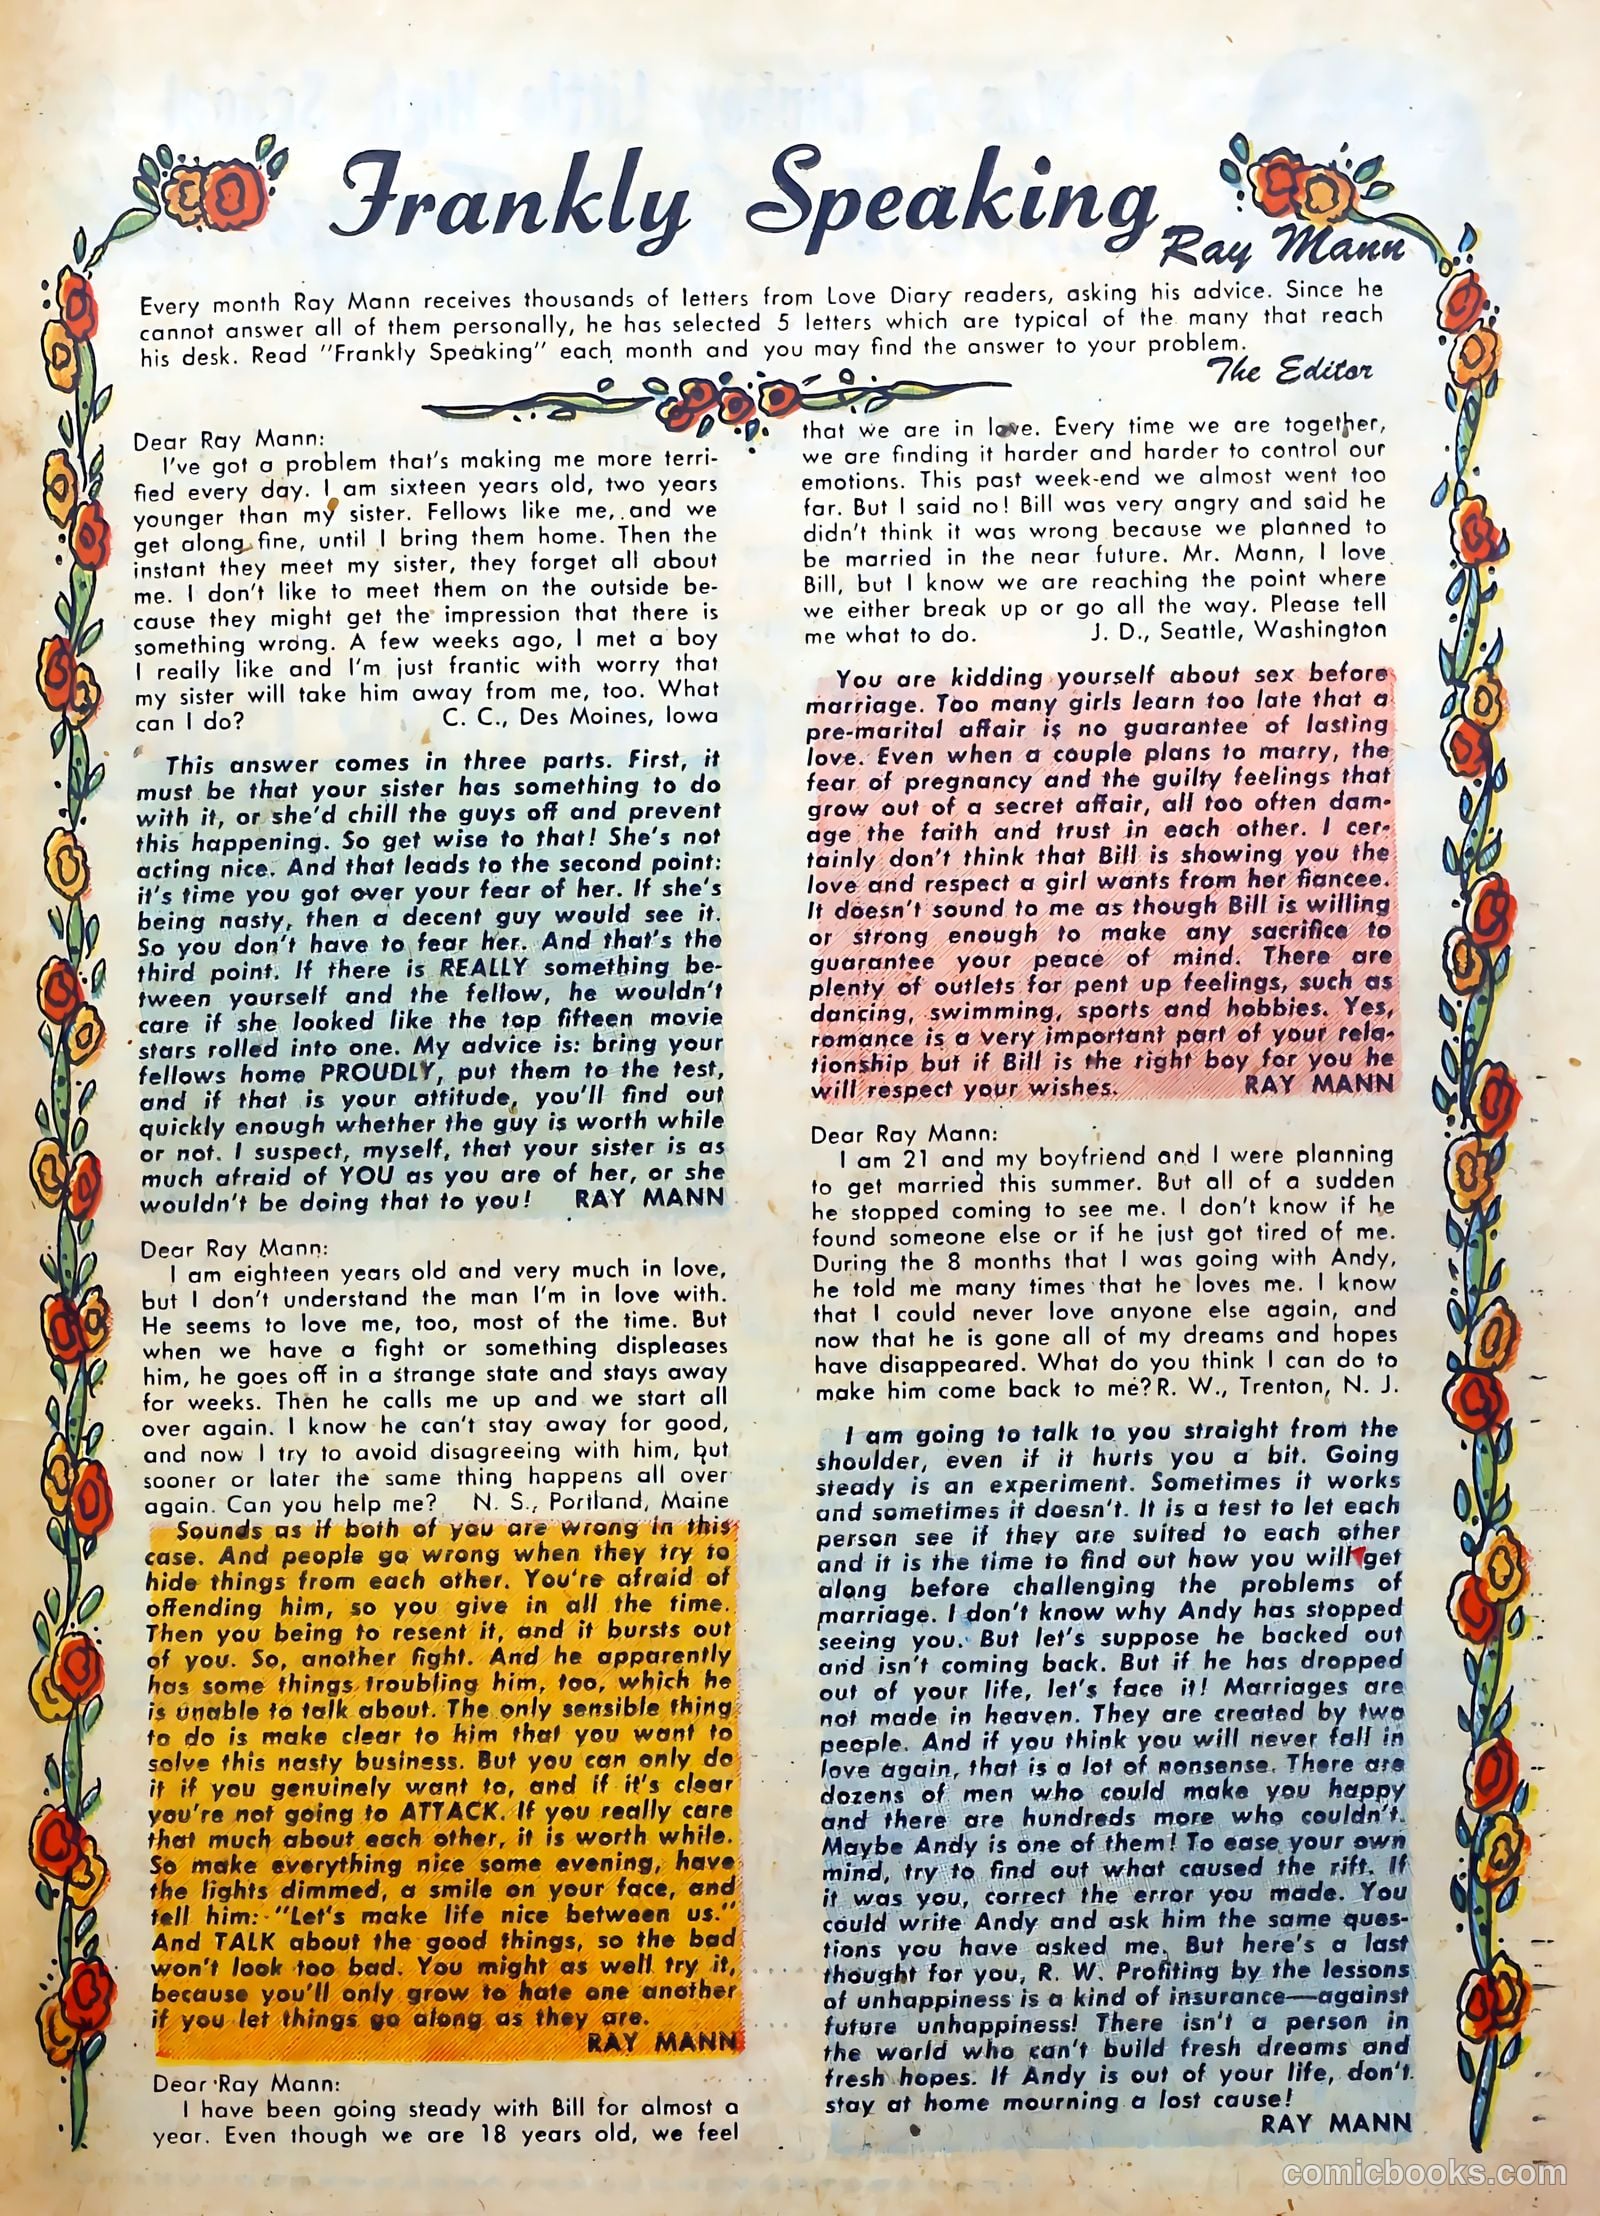 Frankly Speaking
Ray Mann
Every month Ray Mann receives thousands of letters from Love Diary readers, asking his advice. Since he
cannot answer all of them personally, he has selected 5 letters which are typical of the many that reach
his desk. Read "Frankly Speaking" each month and you may find the answer to your problem.
The Editor
Dear Ray Mann:
I've got a problem that's making me more terri-
fied every day. I am sixteen years old, two years
younger than my sister. Fellows like me, and we
get along fine, until I bring them home. Then the
instant they meet my sister, they forget all about
me. I don't like to meet them on the outside be-
cause they might get the impression that there is
something wrong. A few weeks ago, I met a boy
I really like and I'm just frantic with worry that
my sister will take him away from me, too. What
can I do? C. C., Des Moines, Iowa
This answer comes in three parts. First, it
must be that your sister has something to do
with it, or she'd chill the guys off and prevent
this happening. So get wise to that! She's not
acting nice. And that leads to the second point:
it's time you got over your fear of her. If she's
being nasty, then a decent guy would see it.
So you don't have to fear her. And that's the
third point. If there is REALLY something be-
tween yourself and the fellow, he wouldn't
care if she looked like the top fifteen movie
stars rolled into one. My advice is: bring your
fellows home PROUDLY, put them to the test,
and if that is your attitude, you'll find out
quickly enough whether the guy is worth while
or not. I suspect, myself, that your sister is as
much afraid of YOU as you are of her, or she
wouldn't be doing that to you! RAY MANN
Dear Ray Mann:
I am eighteen years old and very much in love,
but I don't understand the man I'm in love with.
He seems to love me, too, most of the time. But
when we have a fight or something displeases
him, he goes off in a strange state and stays away
for weeks. Then he calls me up and we start all
over again. I know he can't stay away for good,
and now I try to avoid disagreeing with him, but
sooner or later the same thing happens all over
again. Can you help me? N. S., Portland, Maine
Sounds as if both of you are wrong in this
case. And people go wrong when they try to
hide things from each other. You're afraid of
offending him, so you give in all the time.
Then you being to resent it, and it bursts out
of you. So, another fight. And he apparently
has some things troubling him, too, which he
is unable to talk about. The only sensible thing
to do is make clear to him that you want to
solve this nasty business. But you can only do
it if you genuinely want to, and if it's clear
you're not going to ATTACK. If you really care
that much about each other, it is worth while.
So make everything nice some evening, have
the lights dimmed, a smile on your face, and
tell him: "Let's make life nice between us."
And TALK about the good things, so the bad
won't look too bad. You might as well try it,
because you'll only grow to hate one another
if you let things go along as they are.
RAY MANN
Dear Ray Mann:
I have been going steady with Bill for almost a
year. Even though we are 18 years old, we feel
that we are in love. Every time we are together,
we are finding it harder and harder to control our
emotions. This past week-end we almost went too
far. But I said no! Bill was very angry and said he
didn't think it was wrong because we planned to
be married in the near future. Mr. Mann, I love
Bill, but I know we are reaching the point where
we either break up or go all the way. Please tell
me what to do. J. D., Seattle, Washington
You are kidding yourself about sex before
marriage. Too many girls learn too late that a
pre-marital affair is no guarantee of lasting
love. Even when a couple plans to marry, the
fear of pregnancy and the guilty feelings that
grow out of a secret affair, all too often dam-
age the faith and trust in each other. I cer-
tainly don't think that Bill is showing you the
love and respect a girl wants from her fiancee.
It doesn't sound to me as though Bill is willing
or strong enough to make any sacrifice to
guarantee your peace of mind. There are
plenty of outlets for pent up feelings, such as
dancing, swimming, sports and hobbies. Yes,
romance is a very important part of your rela-
tionship but if Bill is the right boy for you he
will respect your wishes. RAY MANN
Dear Ray Mann:
I am 21 and my boyfriend and I were planning
to get married this summer. But all of a sudden
he stopped coming to see me. I don't know if he
found someone else or if he just got tired of me.
During the 8 months that I was going with Andy,
he told me many times that he loves me. I know
that I could never love anyone else again, and
now that he is gone all of my dreams and hopes
have disappeared. What do you think I can do to
make him come back to me? R. W., Trenton, N. J.
I am going to talk to you straight from the
shoulder, even if it hurts you a bit. Going
steady is an experiment. Sometimes it works
and sometimes it doesn't. It is a test to let each
person see if they are suited to each other
and it is the time to find out how you will get
along before challenging the problems of
marriage. I don't know why Andy has stopped
seeing you. But let's suppose he backed out
and isn't coming back. But if he has dropped
out of your life, let's face it! Marriages are
not made in heaven. They are created by two
people. And if you think you will never fall in
love again, that is a lot of nonsense. There are
dozens of men who could make you happy
and there are hundreds more who couldn't.
Maybe Andy is one of them! To ease your own
mind, try to find out what caused the rift. If
it was you, correct the error you made. You
could write Andy and ask him the same ques-
tions you have asked me. But here's a last
thought for you, R. W. Profiting by the lessons
of unhappiness is a kind of insurance—against
future unhappiness! There isn't a person in
the world who can't build fresh dreams and
fresh hopes. If Andy is out of your life, don't
stay at home mourning a lost cause!
RAY MANN
comicbooks.com